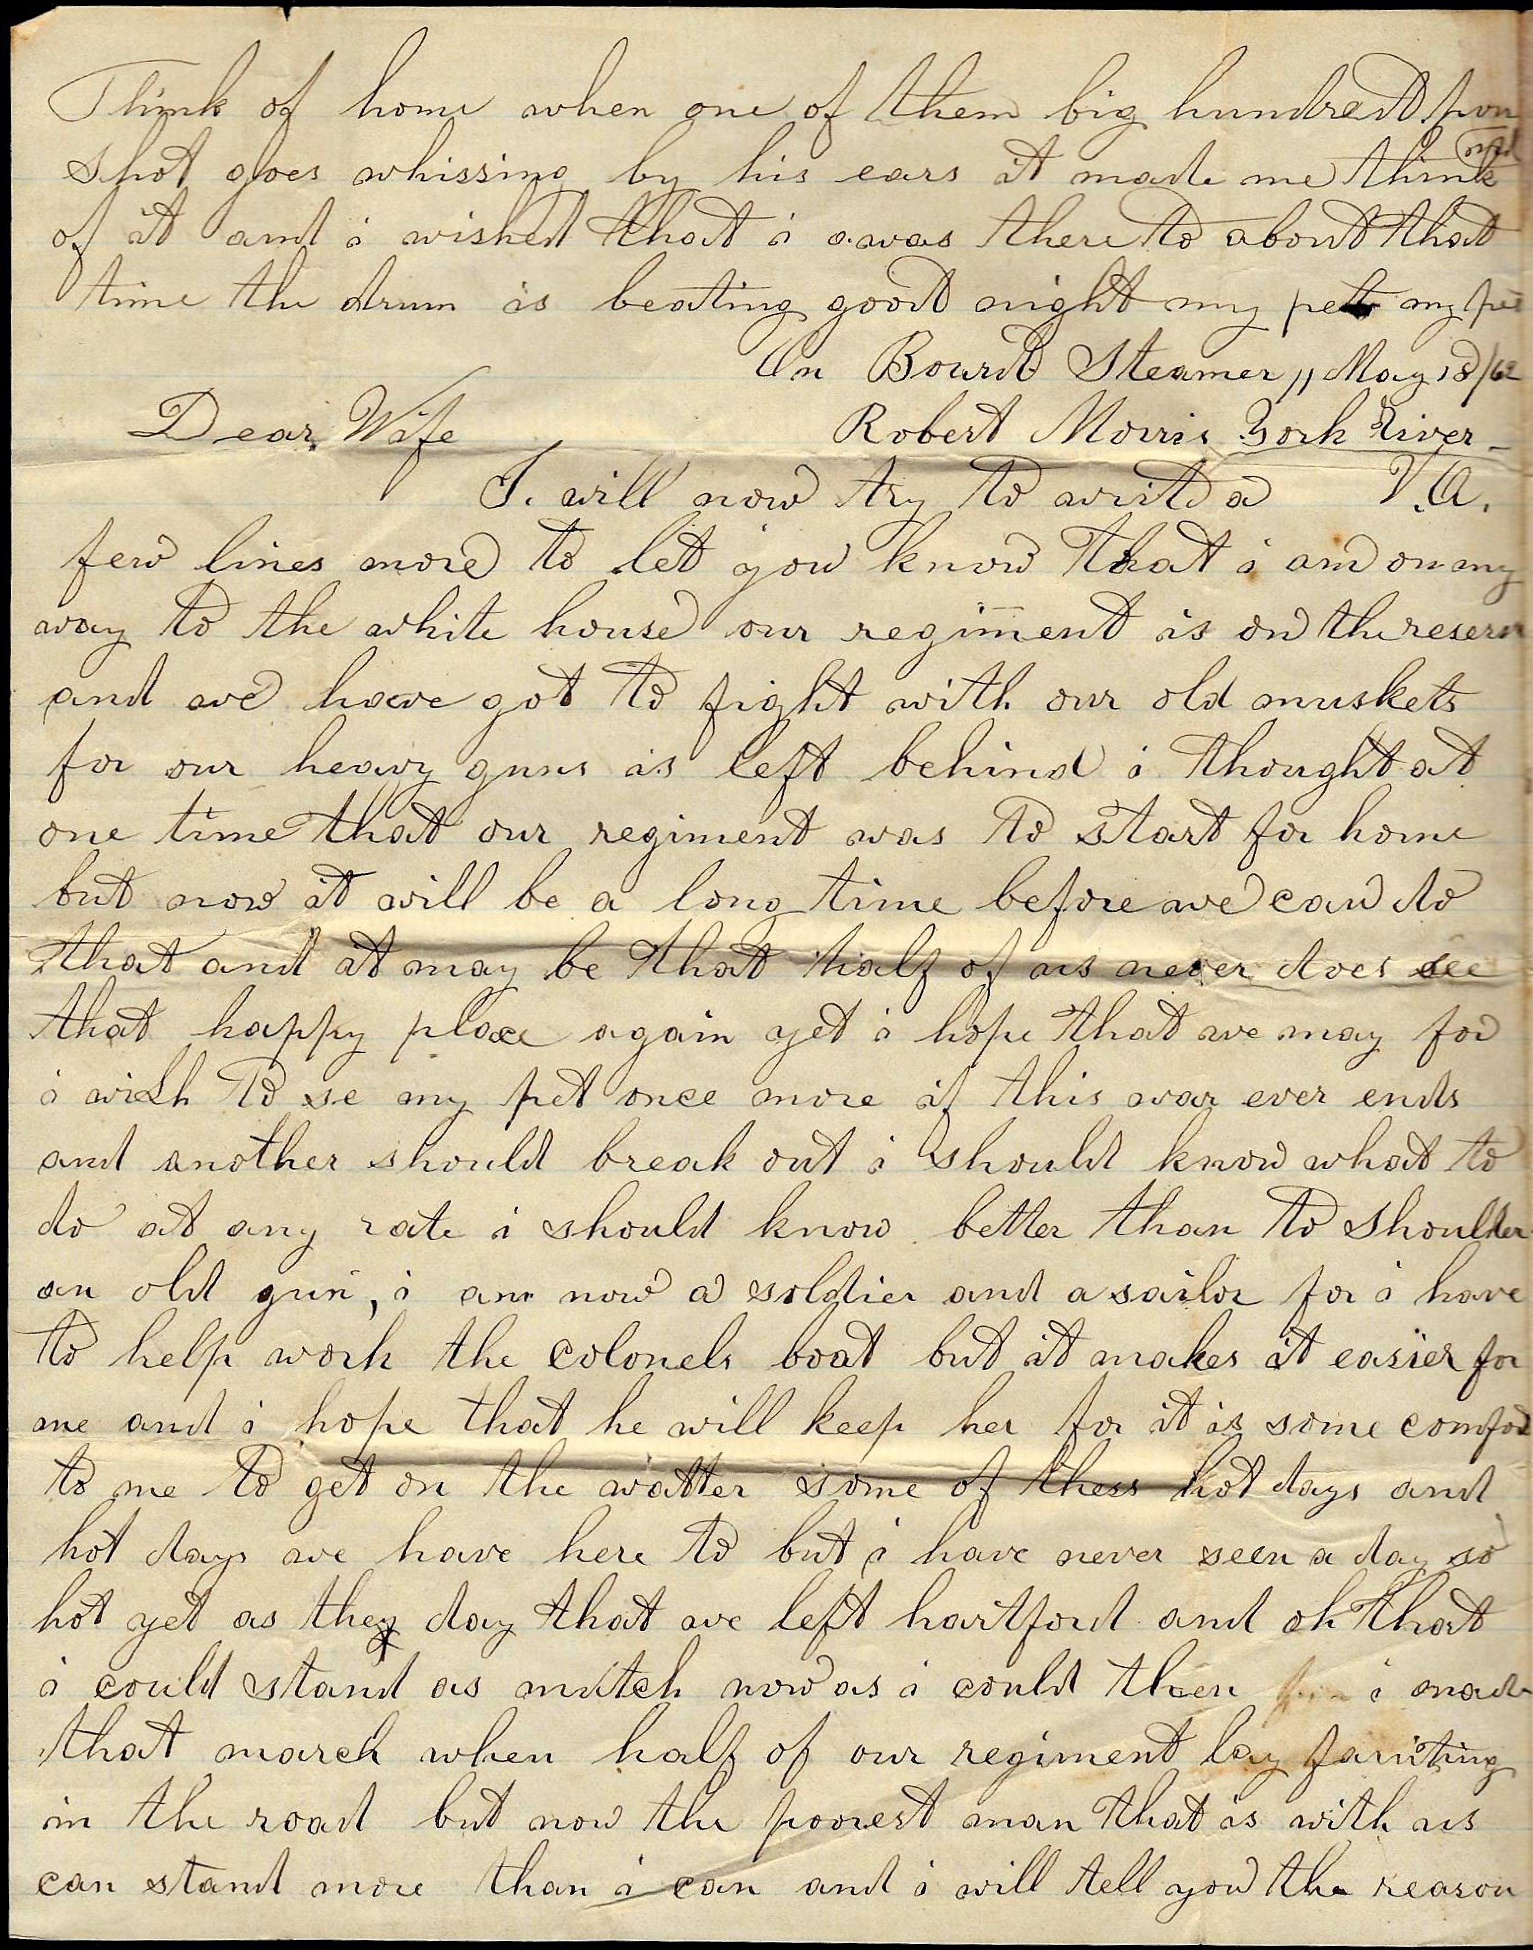 Think of home when one of them big hundredt poun
shot goes whissing by his ears it made me think
of it and i wished that i was there to about that
time the drum is beating good night my pet my pet
On Bourd Steamer,, May 18/62
Dear Wife Robert Morris York River
I. will now try to write a V.A.
few lines more to let you know that i am on my
way to the white house our regiment is on the reserv
and we have got to fight with our old muskets
for our heavy guns is left behind i thought at
one time that our regiment was to start for home
but now it will be a long time before we can do
that and it may be that half of us never does see
that happy place again yet i hope that we may for
i wish to se my pet once more if this war ever ends
and another should break out i should know what to
do at any rate i should know better than to shoulder
an old gun, i am now a soldier and a sailor for i have
to help work the colonels boat but it makes it easier for
me and i hope that he will keep her for it is some comfort
to me to get on the watter some of thess hot days and
hot days we have here to but i have never seen a day so
hot yet as they day that we left hartford and oh that
i could stand as mutch now as i could then i made
that march when half of our regiment lay fainting
in the road but now the poorest man that is with us
can stand more than i can and i will tell you the reason